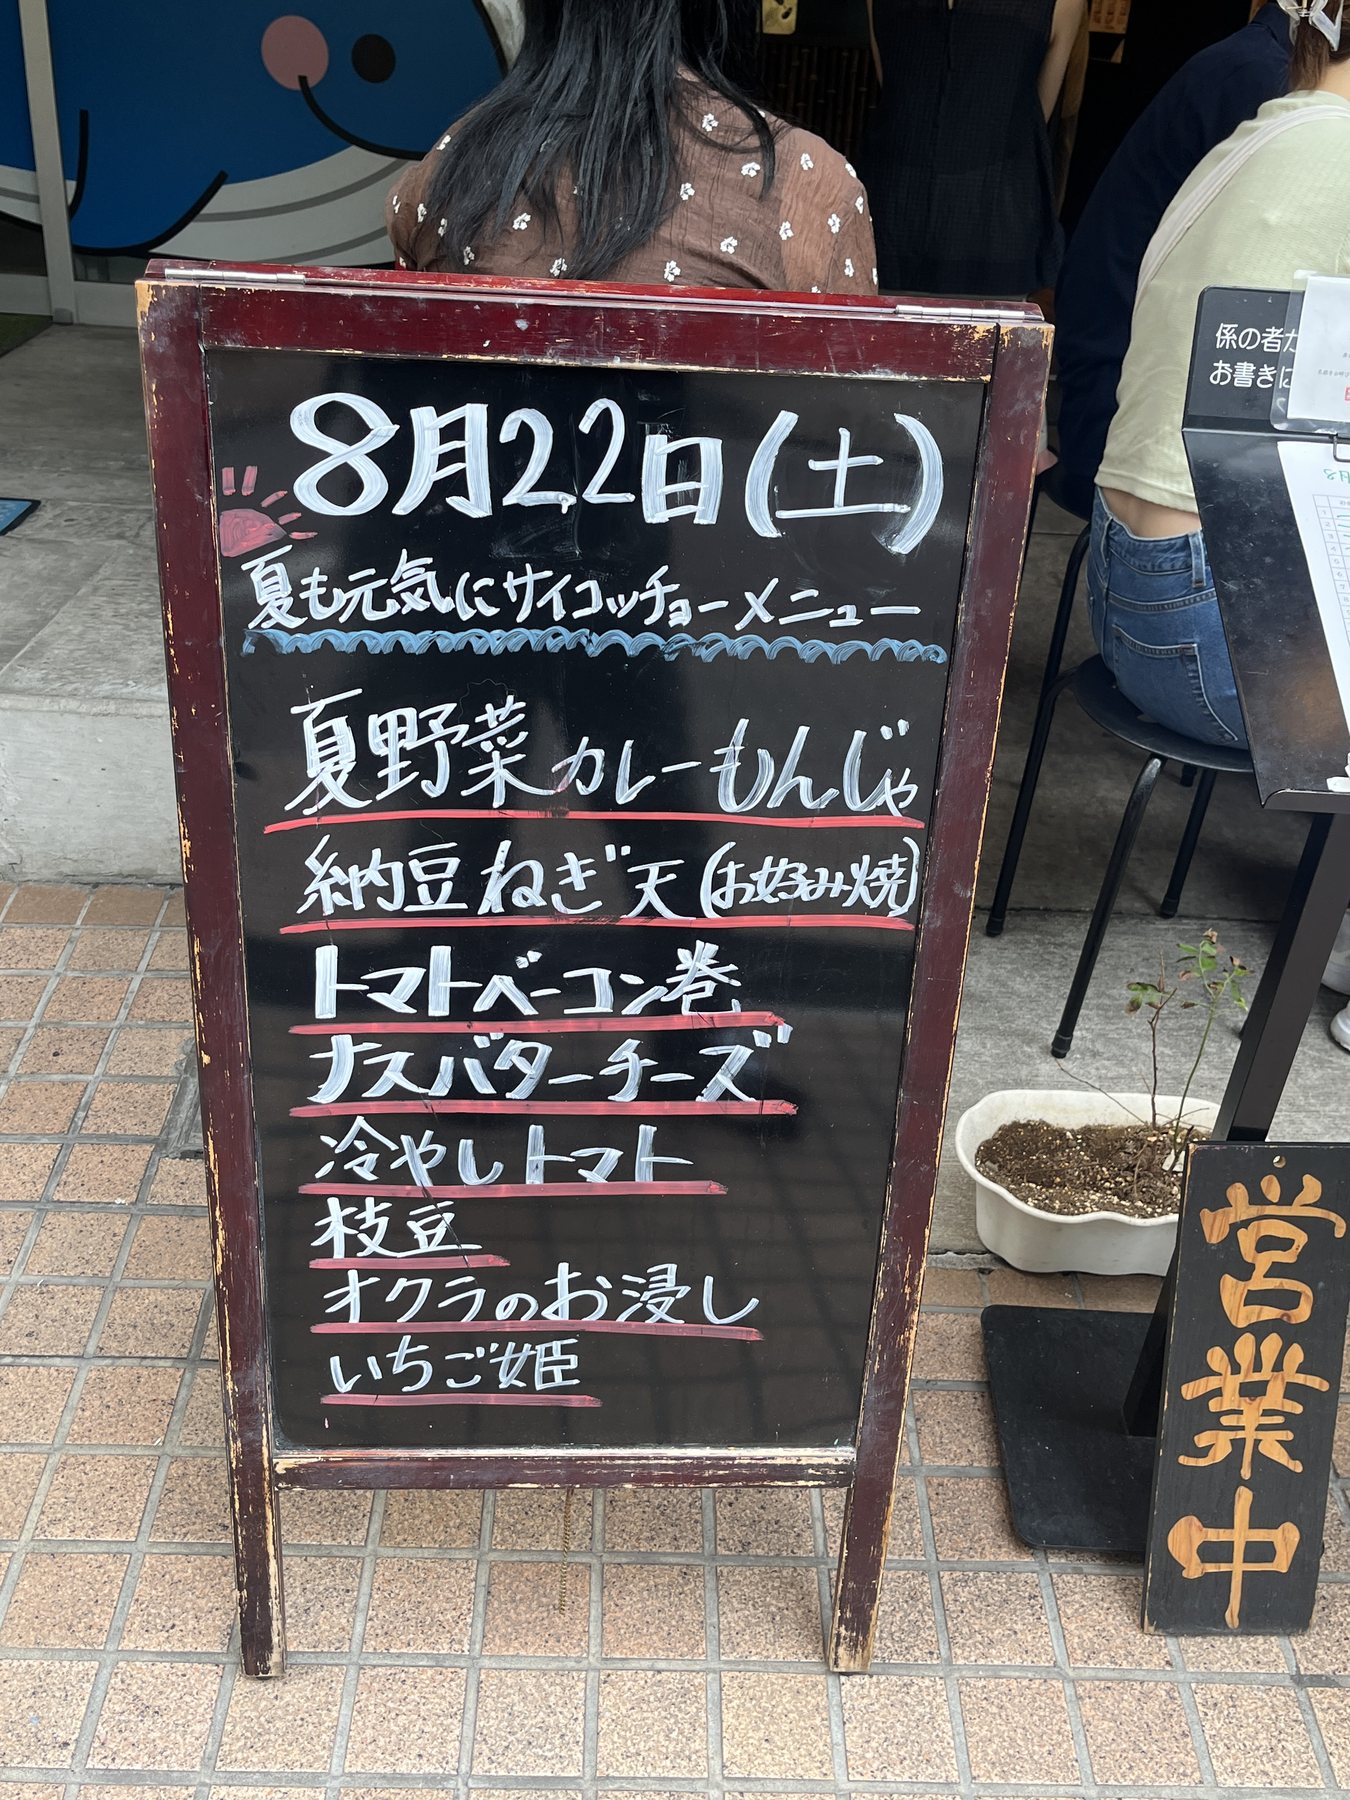 8月22日(土)
夏も元気にサイコッチョーメニュー
夏野菜カレーもんじゃ
納豆ねぎ天(お好み焼)
トマトベーコン巻
ナスバターチーズ
冷やしトマト
枝豆
オクラのお浸し
いちご姫
係の者が
お書きに
8月
営業中